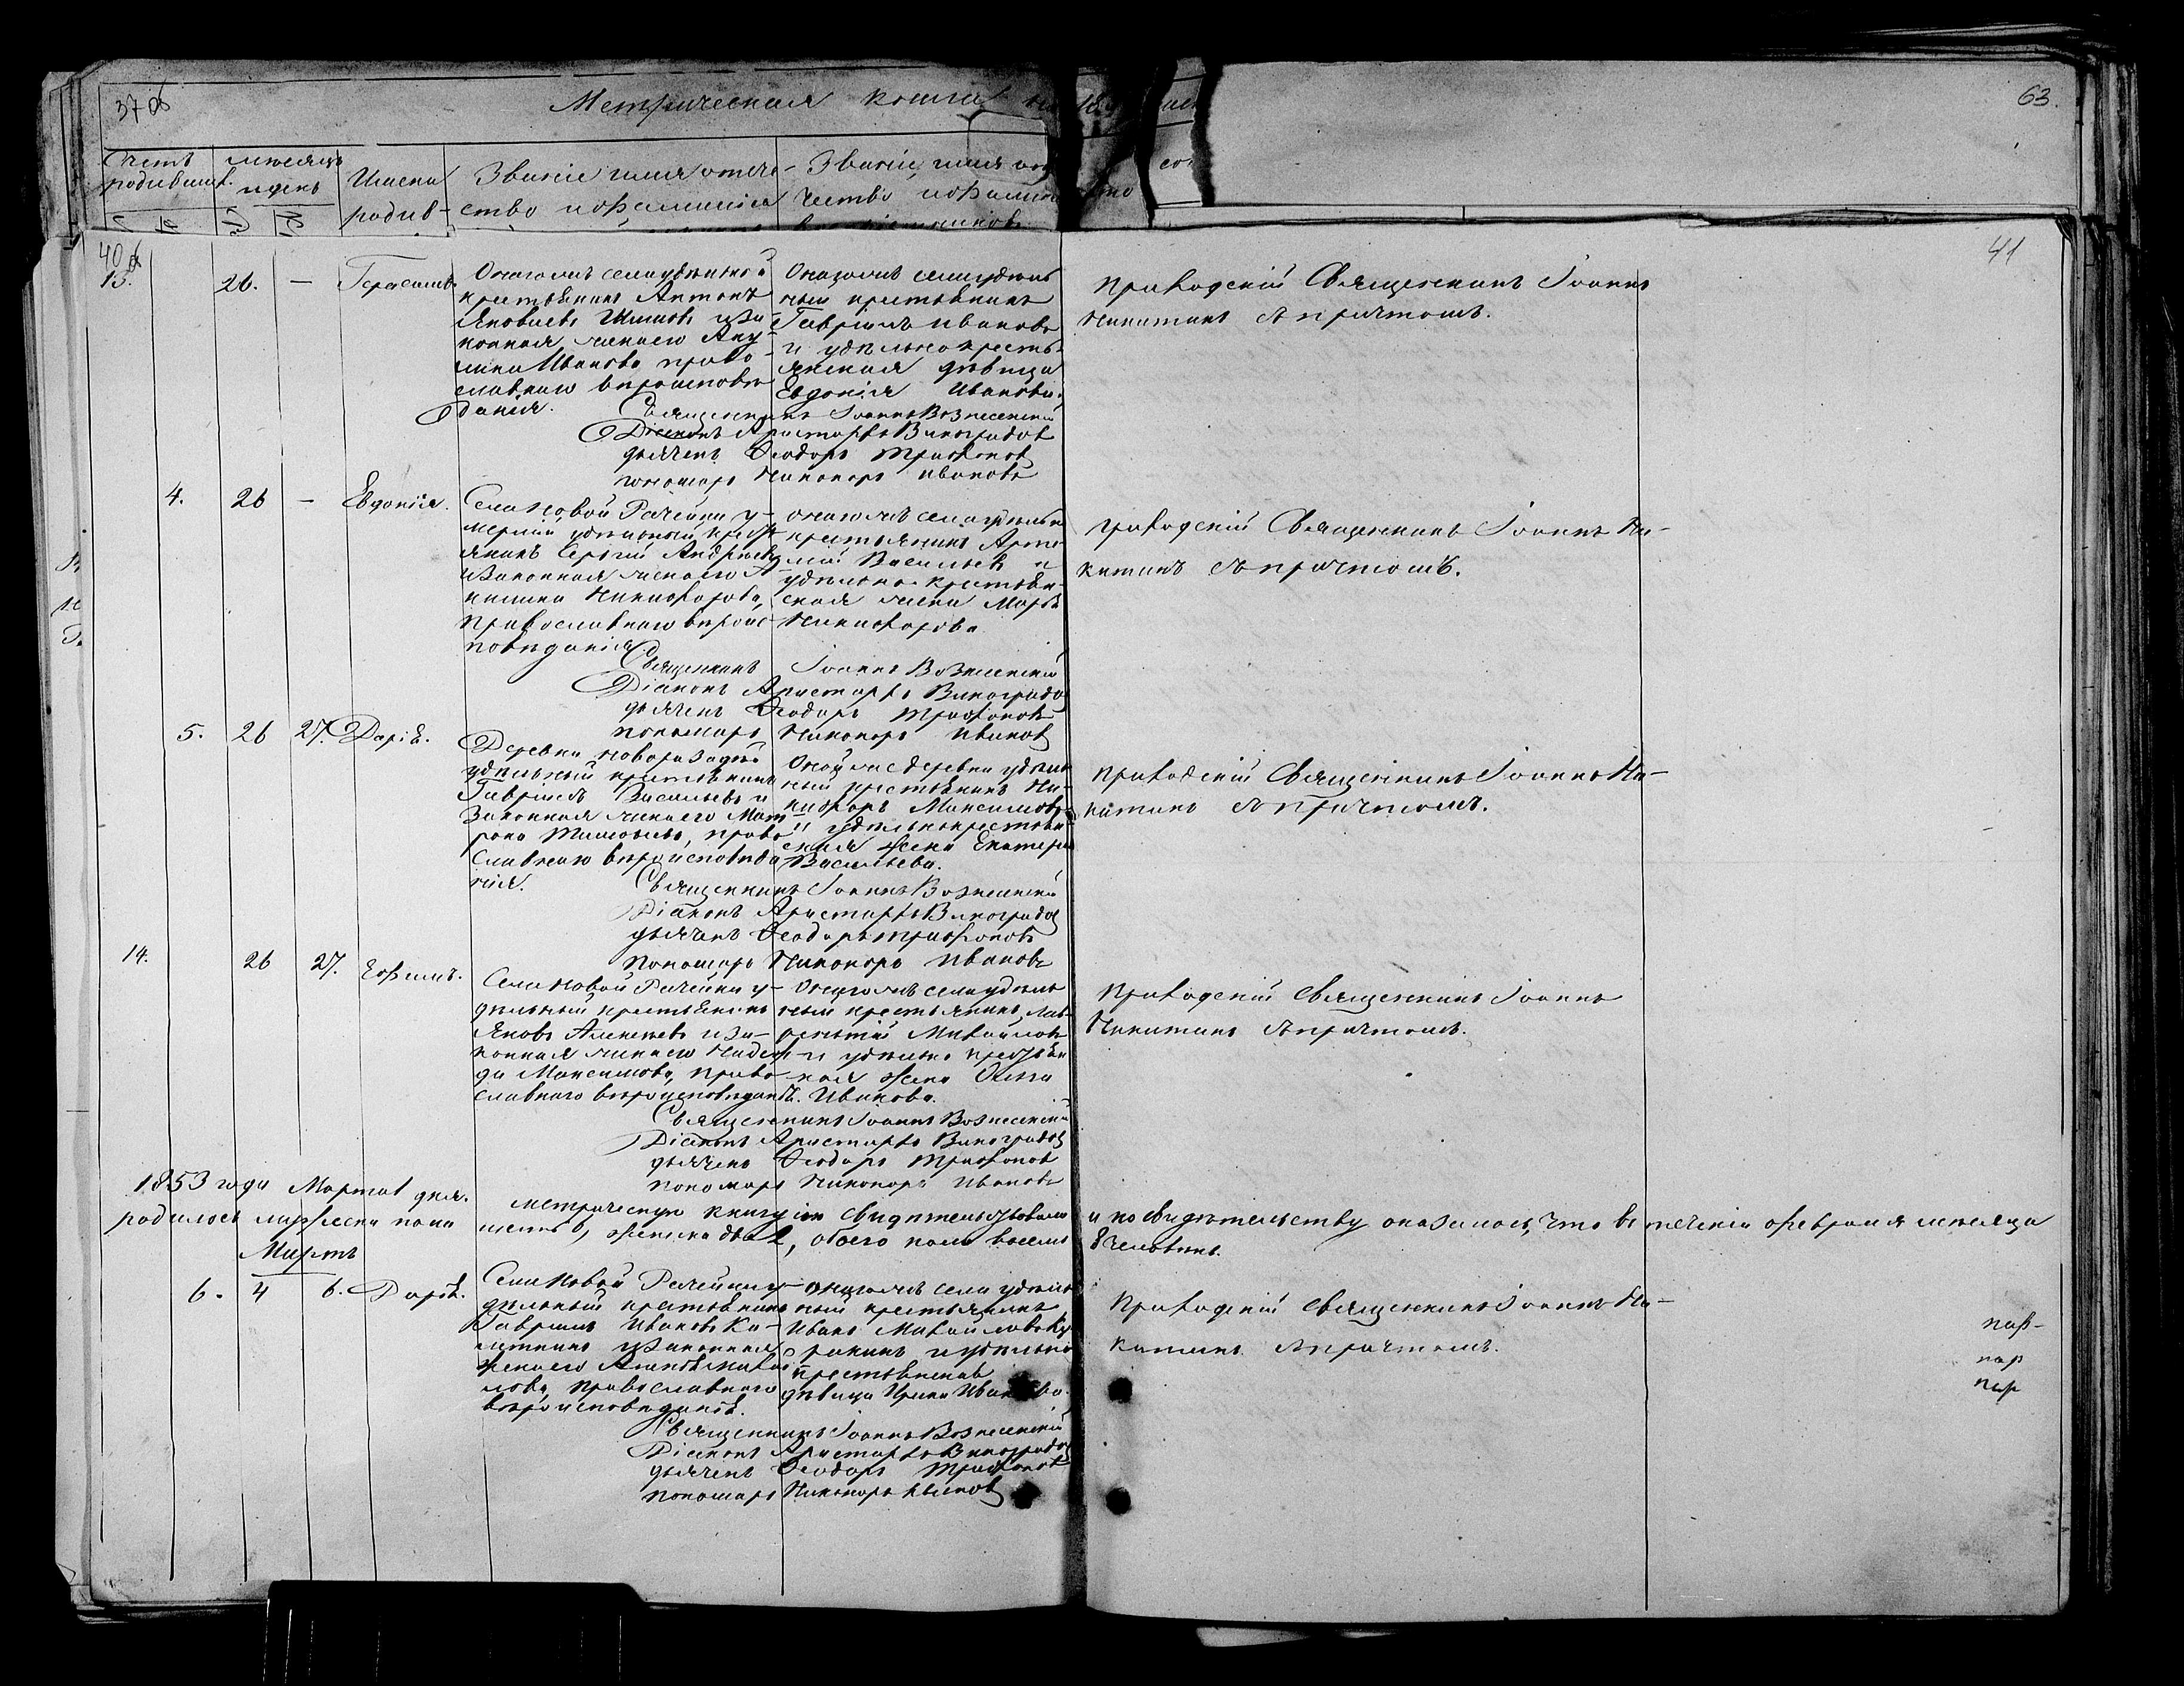 37 об
Метрическая книга на 18
63.
Счетъ
родивших.
месяцъ
и день
Имена
родив-
Званіе имя отече-
ство и фамилія
Званіе, имя
чество и фамилі
40 об
41
13. 26. — Герасимъ.
Онагожъ села удѣльной
крестьянинъ Антонъ
Яковлевъ Шишовъ и за-
конная жена его Аку-
лина Иванова, право-
славнаго вѣроисповѣ
данія.
Онагожъ села удѣль
ный крестьянинъ
Гавріилъ Ивановъ
и удѣльнокресть-
янская дѣвица
Евдокія Иванова.
Приходскій Священникъ Іоаннъ
Никитинъ съ причтомъ.
Священникъ Іоаннъ Вознесенскій
Діаконъ Аристархъ Виноградовъ
дьячекъ Ѳеодоръ Трифоновъ
пономарь Никаноръ Ивановъ
4. 26 — Евдокія.
Села Новой Рачейки у-
мершій удѣльный крестья
янинъ Сергій Андреевъ
и законная жена его А
килина Никифорова,
православнаго вѣроис-
повѣданія.
онагожъ села удѣльн
крестьянинъ Арте-
мій Васильевъ и
удѣльно-крестьян-
ская жена Марѳа
Никифорова
приходскій Священникъ Іоаннъ Ни-
китинъ съ причтомъ.
Священникъ Іоаннъ Вознесенскій
Діаконъ Аристархъ Виноградов
дьячекъ Ѳеодоръ Трифоновъ
пономарь Никаноръ Ивановъ
5. 26 27. Дарія.
Деревни
удѣльный крестьянинъ
Гавріилъ Васильевъ и
Законная жена его Мат
рона Тимофеева, право
славнаго вѣроисповѣда
нія.
Онойже деревни удѣль
ный крестьянинъ Ни-
кифоръ Максимовъ
и удѣльнокрестьян
ская жена Екатери
Васильева.
приходскій Священникъ Іоаннъ Ни-
китинъ съ причтомъ.
Священникъ Іоаннъ Вознесенскій
Діаконъ Аристархъ Виноградов
дьячекъ Ѳеодоръ Трифоновъ
пономарь Никаноръ Ивановъ
14. 26 27. Ефимъ.
Села Новой Рачейки у-
дѣльный крестьянинъ
Яковъ Алексѣевъ и за-
конная жена его Надеж-
да Максимова, право
славнаго вѣроисповѣданія.
Онагожъ села удѣль
ный крестьянинъ, Лав-
рентій Михайловъ
и удѣльно крестьян
ная жена Ольга
Иванова.
Приходскій Священникъ Іоаннъ
Никитинъ съ причтомъ.
Священникъ Іоаннъ Вознесенскій
Діаконъ Аристархъ Виноградов
дьячекъ Ѳеодоръ Трифоновъ
пономарь Никаноръ Ивановъ
1853 года Марта 1 дня. метрическую книгу сію свидѣтельствовали и по свидѣтельству оказалось, что въ теченіи февраля месяца
родилось мужеска пола шесть 6, женска два 2, обоего пола восемь 8 человѣкъ.
Мартъ
6. 4 6. Дарія.
Села Новой Рачейки у-
дѣльный крестьянинъ
Гавріилъ Ивановъ Ка-
и законная
жена его Агаѳія Михай
лова, Православнаго
вѣроисповѣданія.
онагожъ села удѣль
ный крестьянинъ
Иванъ Михайловъ
и удѣльно
крестьянская
дѣвица Ирина Иванова.
Приходскій Священникъ Іоаннъ Ни-
китинъ съ причтомъ.
Священникъ Іоаннъ Вознесенскій
Діаконъ Аристархъ Виноградов
дьячекъ Ѳеодоръ Трифоновъ
пономарь Никаноръ Ивановъ